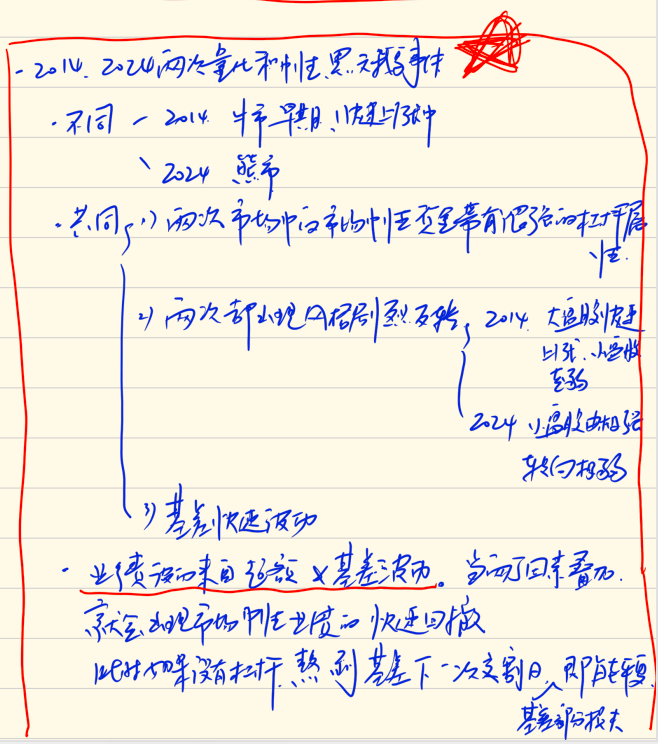 - 2014、2024两次量化和中性黑天鹅事件
· 不同 - 2014 牛市早期,快速上涨中
、2024 熊市
· 共同 1) 两次市场中的市场中性变里带有很强的杠杆属
性.
2) 两次都出现风格剧烈反转 2014 大盘股快速
上涨、小盘股
走弱
2024 小盘股由相强
转向相弱
3) 基差快速波动
· 业绩波动来自超额 x 基差波动。当两个因素叠加.
就会出现市场中性业绩的快速回撤
此时如果没有杠杆,熬到基差下一次交割日,即能修复
基差部分损失